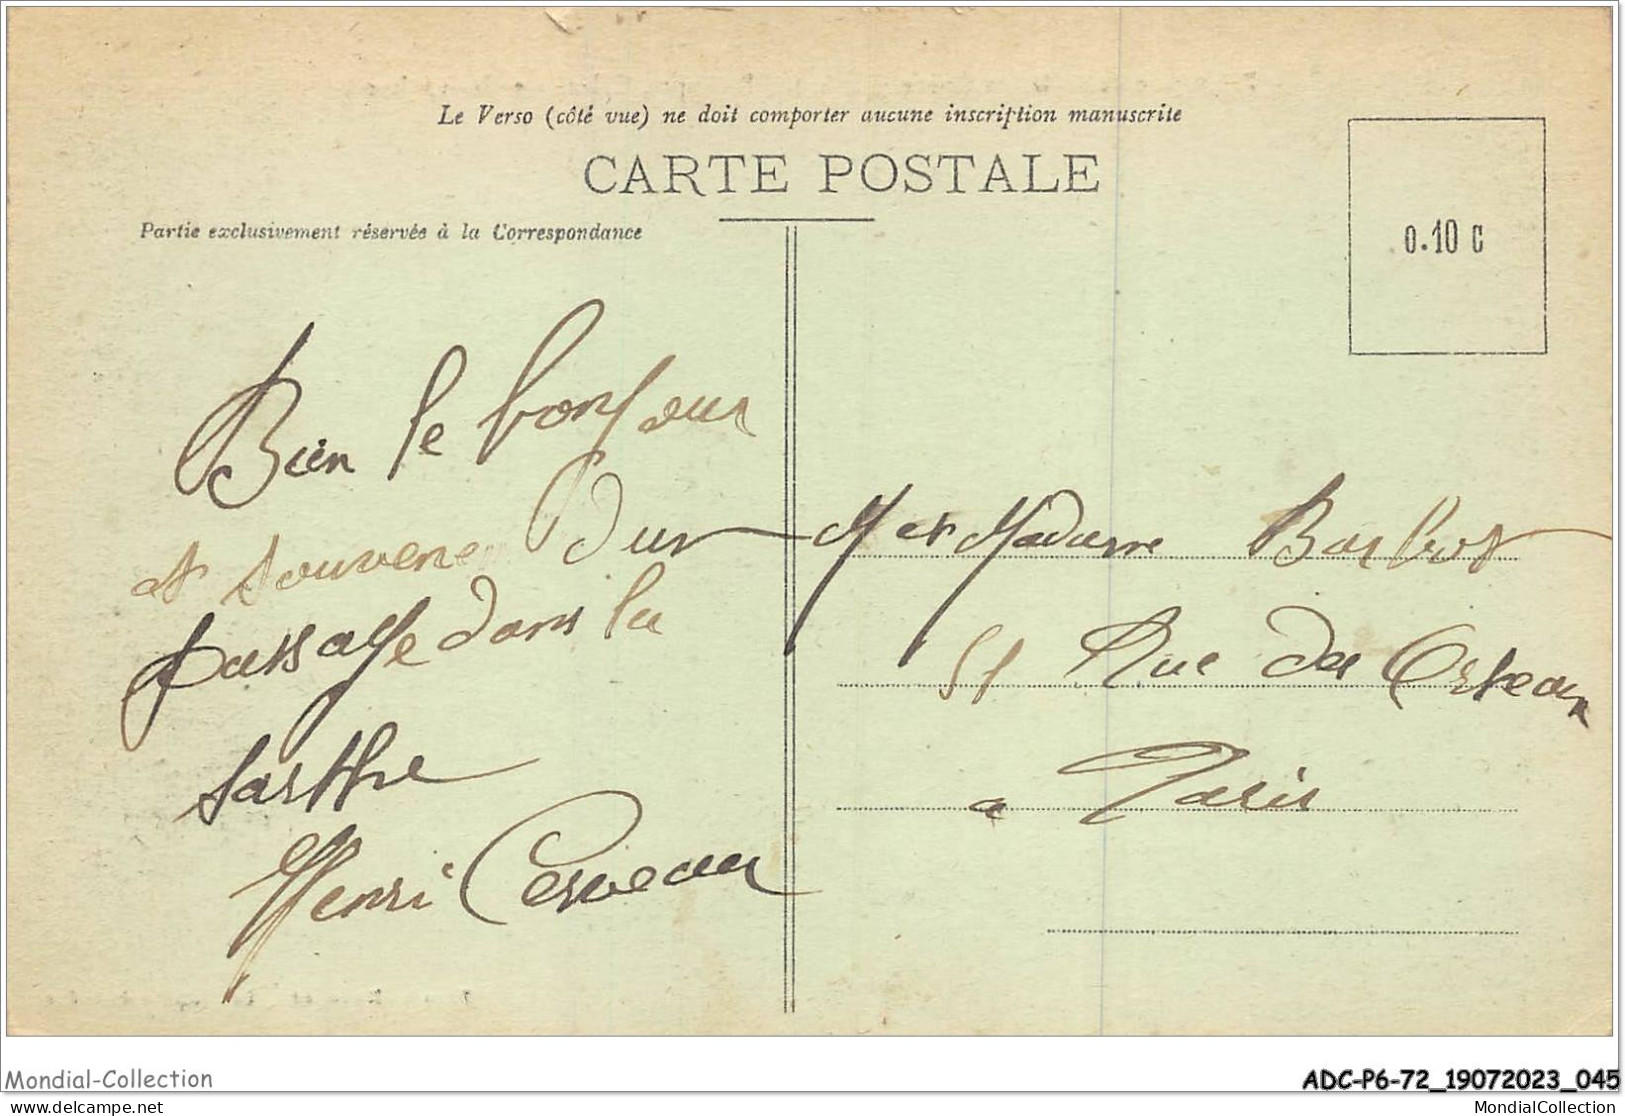 Le Verso (côté vue) ne doit comporter aucune inscription manuscrite
CARTE POSTALE
Partie exclusivement réservée à la Correspondance
0.10 C
Bien le bonjour
et souvenir d'un
passage dans la
Sarthe
Henri Cerveau
M et Madame Barbot
51 Rue des
a Paris
Mondial-Collection
ADC-P6-72_19072023_045
delcampe.net
MondialCollection